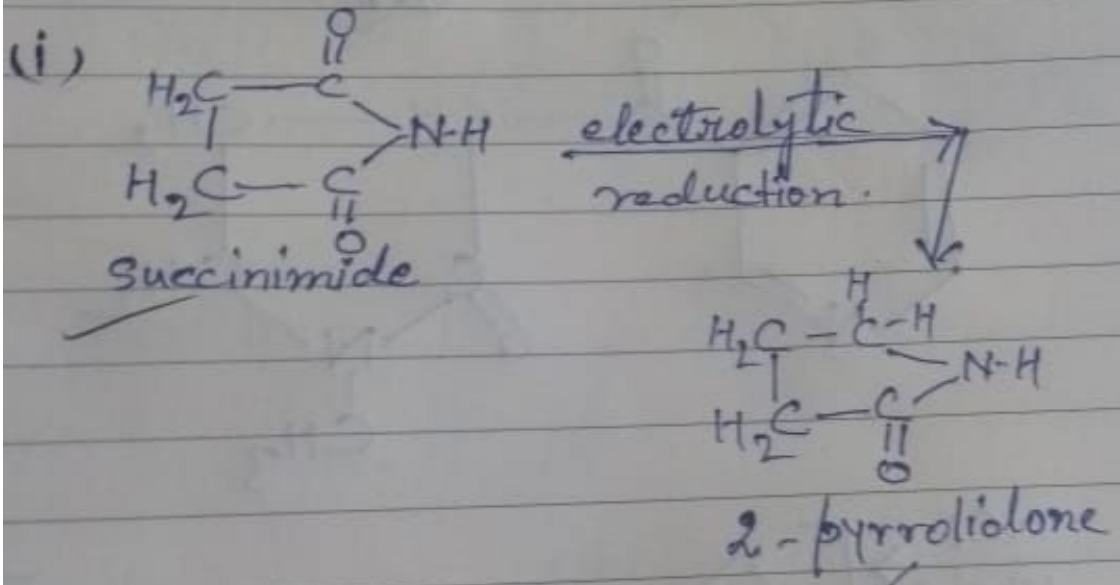 (i)
O
H2C — C
N-H
H2C — C
O
Succinimide
electrolytic
reduction.
H
H2C - C-H
N-H
H2C — C
O
2-pyrrolidone